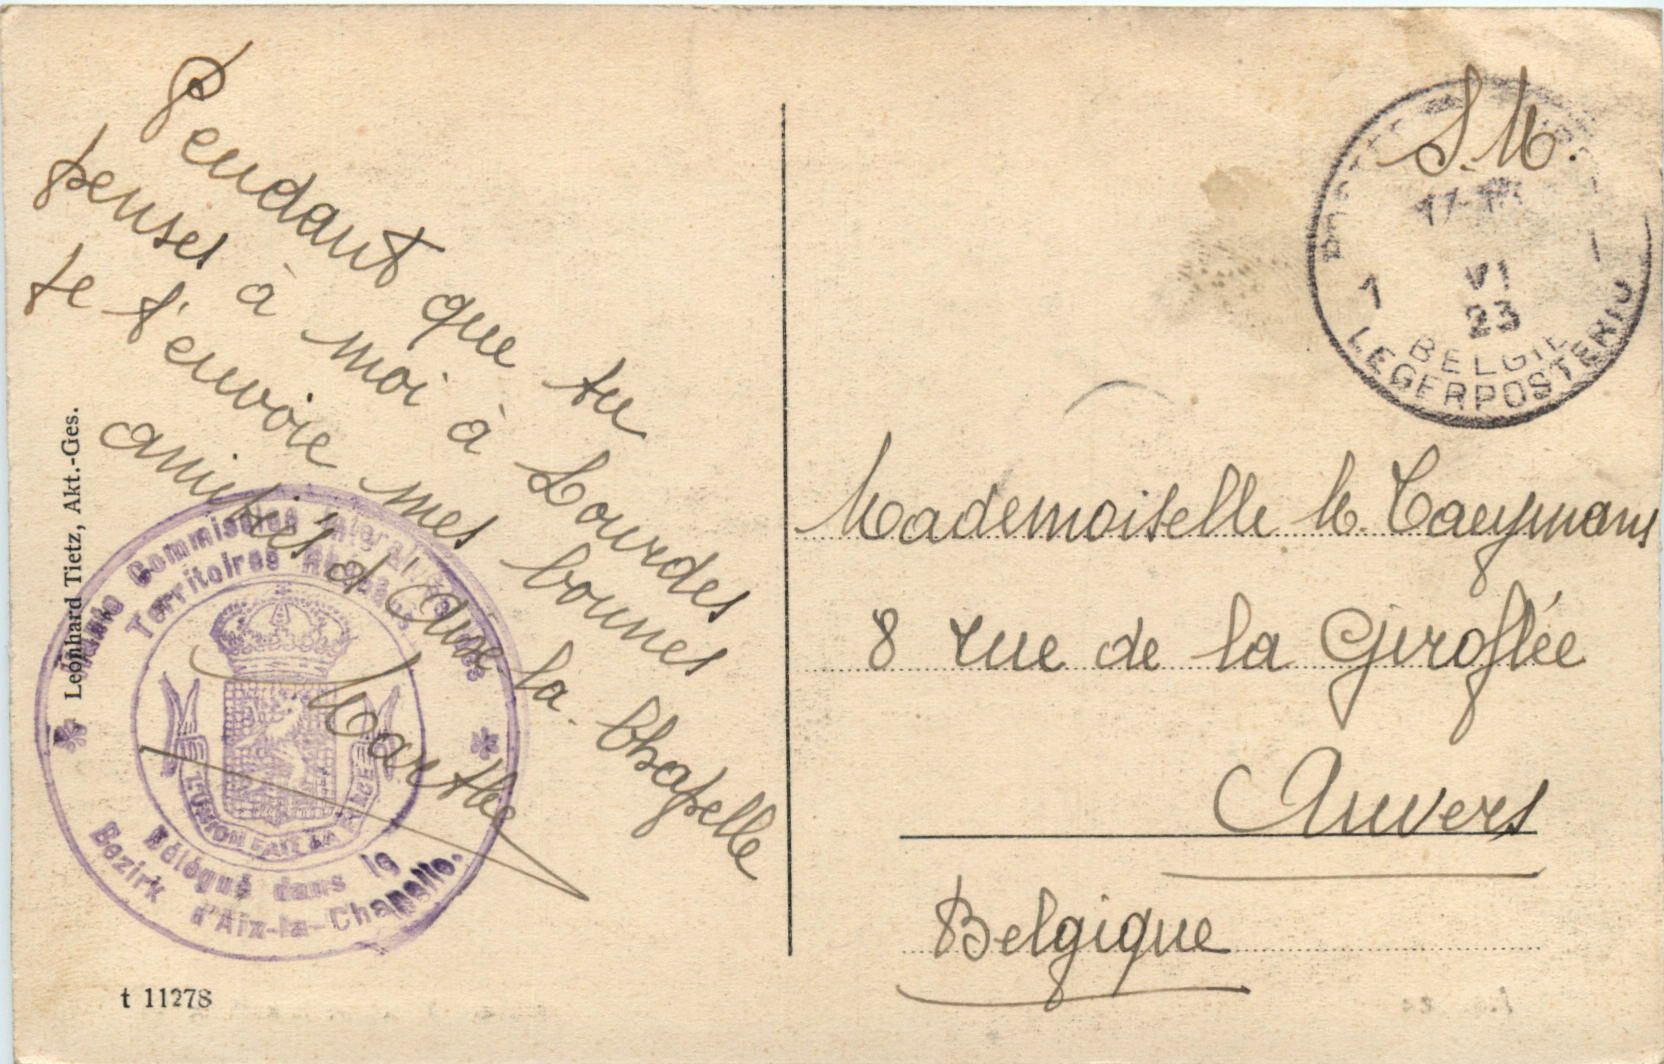 Pendant que tu
penses à moi à Lourdes
je t'envoie mes bonnes
amitiés d'Aix-la-Chapelle
Marthe
Haute Commission Interalliée des
Territoires Rhénans
L'UNION FAIT LA FORCE
Délégué dans le
Bezirk d'Aix-la-Chapelle.
Leonhard Tietz, Akt.-Ges.
t 11278
S.M.
POSTES
17-
1
VI
23
BELGIE
LEGERPOSTERIJ
Mademoiselle M.
8 rue de la Giroflée
Anvers
Belgique